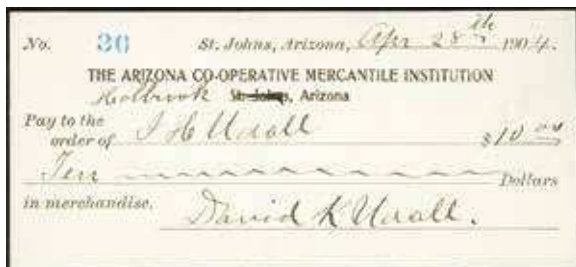 No. 36 St. Johns, Arizona, Apr 28th 1904.
THE ARIZONA CO-OPERATIVE MERCANTILE INSTITUTION
Holbrook St. Johns, Arizona
Pay to the
order of J H Udall $10 00
Ten Dollars
in merchandise. David K Udall.